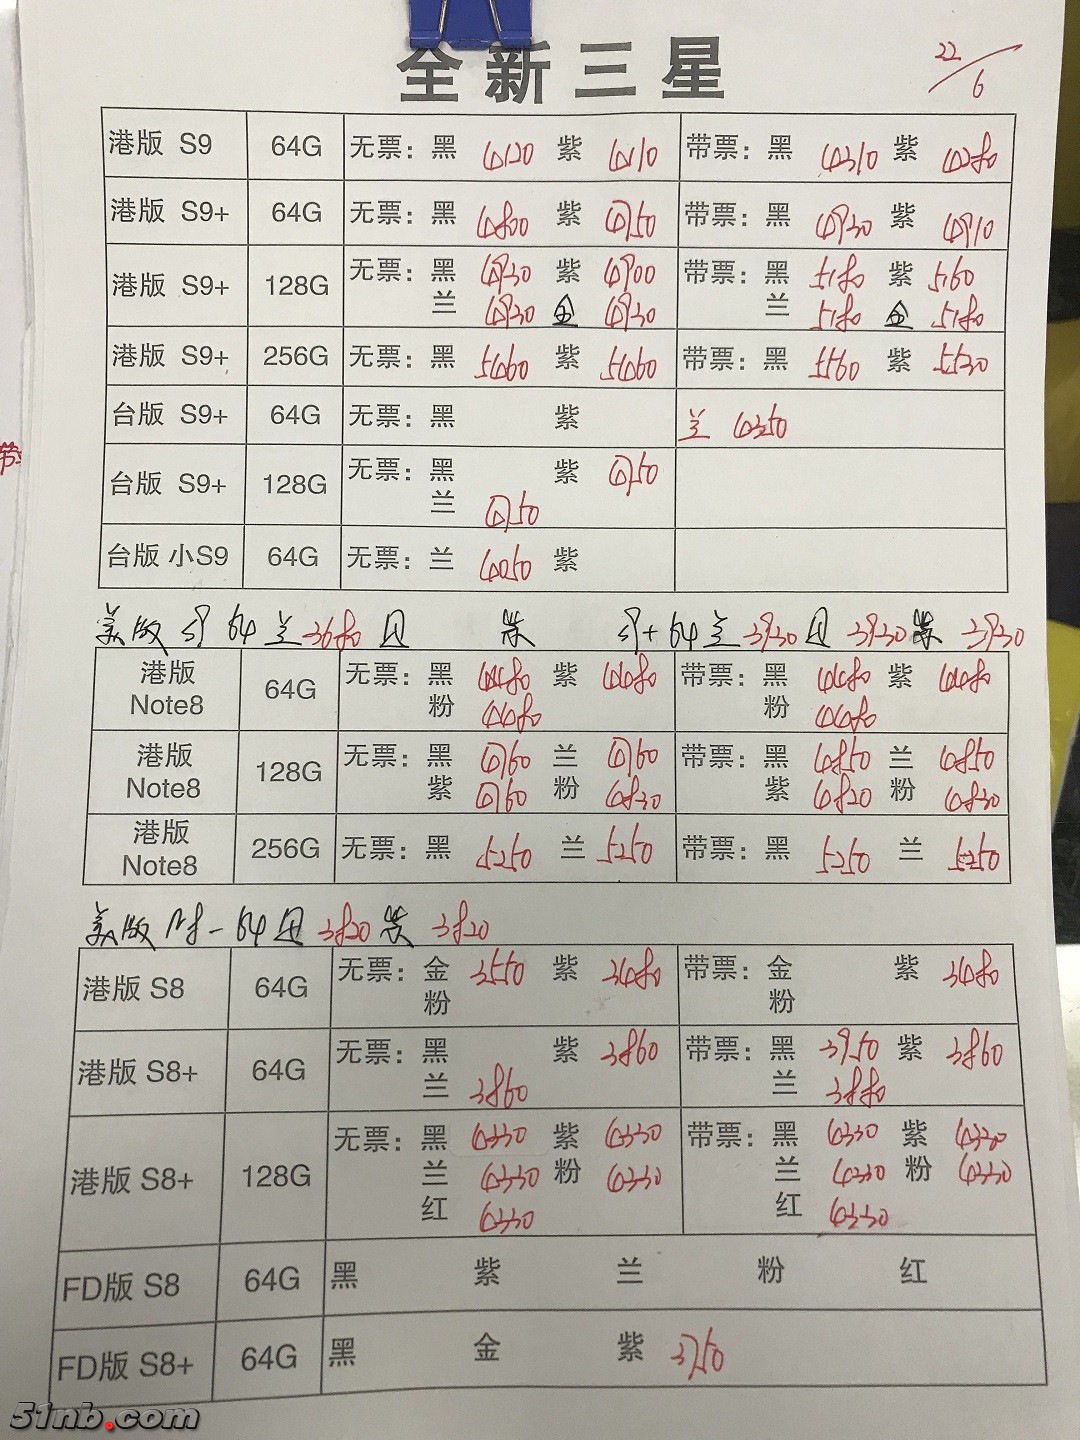 全新三星
22/6
港版 S9 64G 无票：黑 4120 紫 4110 带票：黑 4310 紫 4280
港版 S9+ 64G 无票：黑 4800 紫 4750 带票：黑 4930 紫 4910
港版 S9+ 128G 无票：黑 4930 紫 4900 带票：黑 5180 紫 5160
兰 4930 金 4930 兰 5180 金 5180
港版 S9+ 256G 无票：黑 5460 紫 5460 带票：黑 5560 紫 5530
台版 S9+ 64G 无票：黑 紫 兰 4350
台版 S9+ 128G 无票：黑 紫 4750
兰 4750
台版 小S9 64G 无票：兰 4050 紫
美版 S9 64 兰 3680 黑 紫 S9+ 64 兰 3930 黑 3930 紫 3930
港版 Note8 64G 无票：黑 4480 紫 4480 带票：黑 4480 紫 4480
粉 4480 粉 4480
港版 Note8 128G 无票：黑 4760 兰 4760 带票：黑 4850 兰 4850
紫 4760 粉 4830 紫 4820 粉 4830
港版 Note8 256G 无票：黑 5250 兰 5250 带票：黑 5250 兰 5250
美版 N8-64 黑 3820 紫 3820
港版 S8 64G 无票：金 3550 紫 3480 带票：金 紫 3480
粉 粉
港版 S8+ 64G 无票：黑 紫 3860 带票：黑 3950 紫 3860
兰 3860 兰 3880
港版 S8+ 128G 无票：黑 4330 紫 4330 带票：黑 4330 紫 4330
兰 4330 粉 4330 兰 4330 粉 4330
红 4330 红 4330
FD版 S8 64G 黑 紫 兰 粉 红
FD版 S8+ 64G 黑 金 紫 3750
51nb.com